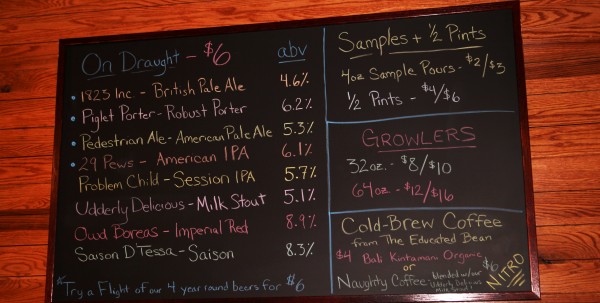 On Draught - $6 abv
1823 Inc - British Pale Ale 4.6%
Piglet Porter - Robust Porter 6.2%
Pedestrian Ale - American Pale Ale 5.3%
29 Pews - American IPA 6.1%
Problem Child - Session IPA 5.7%
Udderly Delicious - Milk Stout 5.1%
Owd Boreas - Imperial Red 8.9%
Saison D'Tessa - Saison 8.3%
*Try a Flight of our 4 year round beers for $6
Samples + 1/2 Pints
4oz Sample Pours - $2/$3
1/2 Pints - $4/$6
GROWLERS
32oz. - $8/$10
64oz - $12/$16
Cold-Brew Coffee
from The Educated Bean
$4 Bali Kintamani Organic
or
Naughty Coffee blended w/our Udderly Delicious Milk Stout $6
NITRO